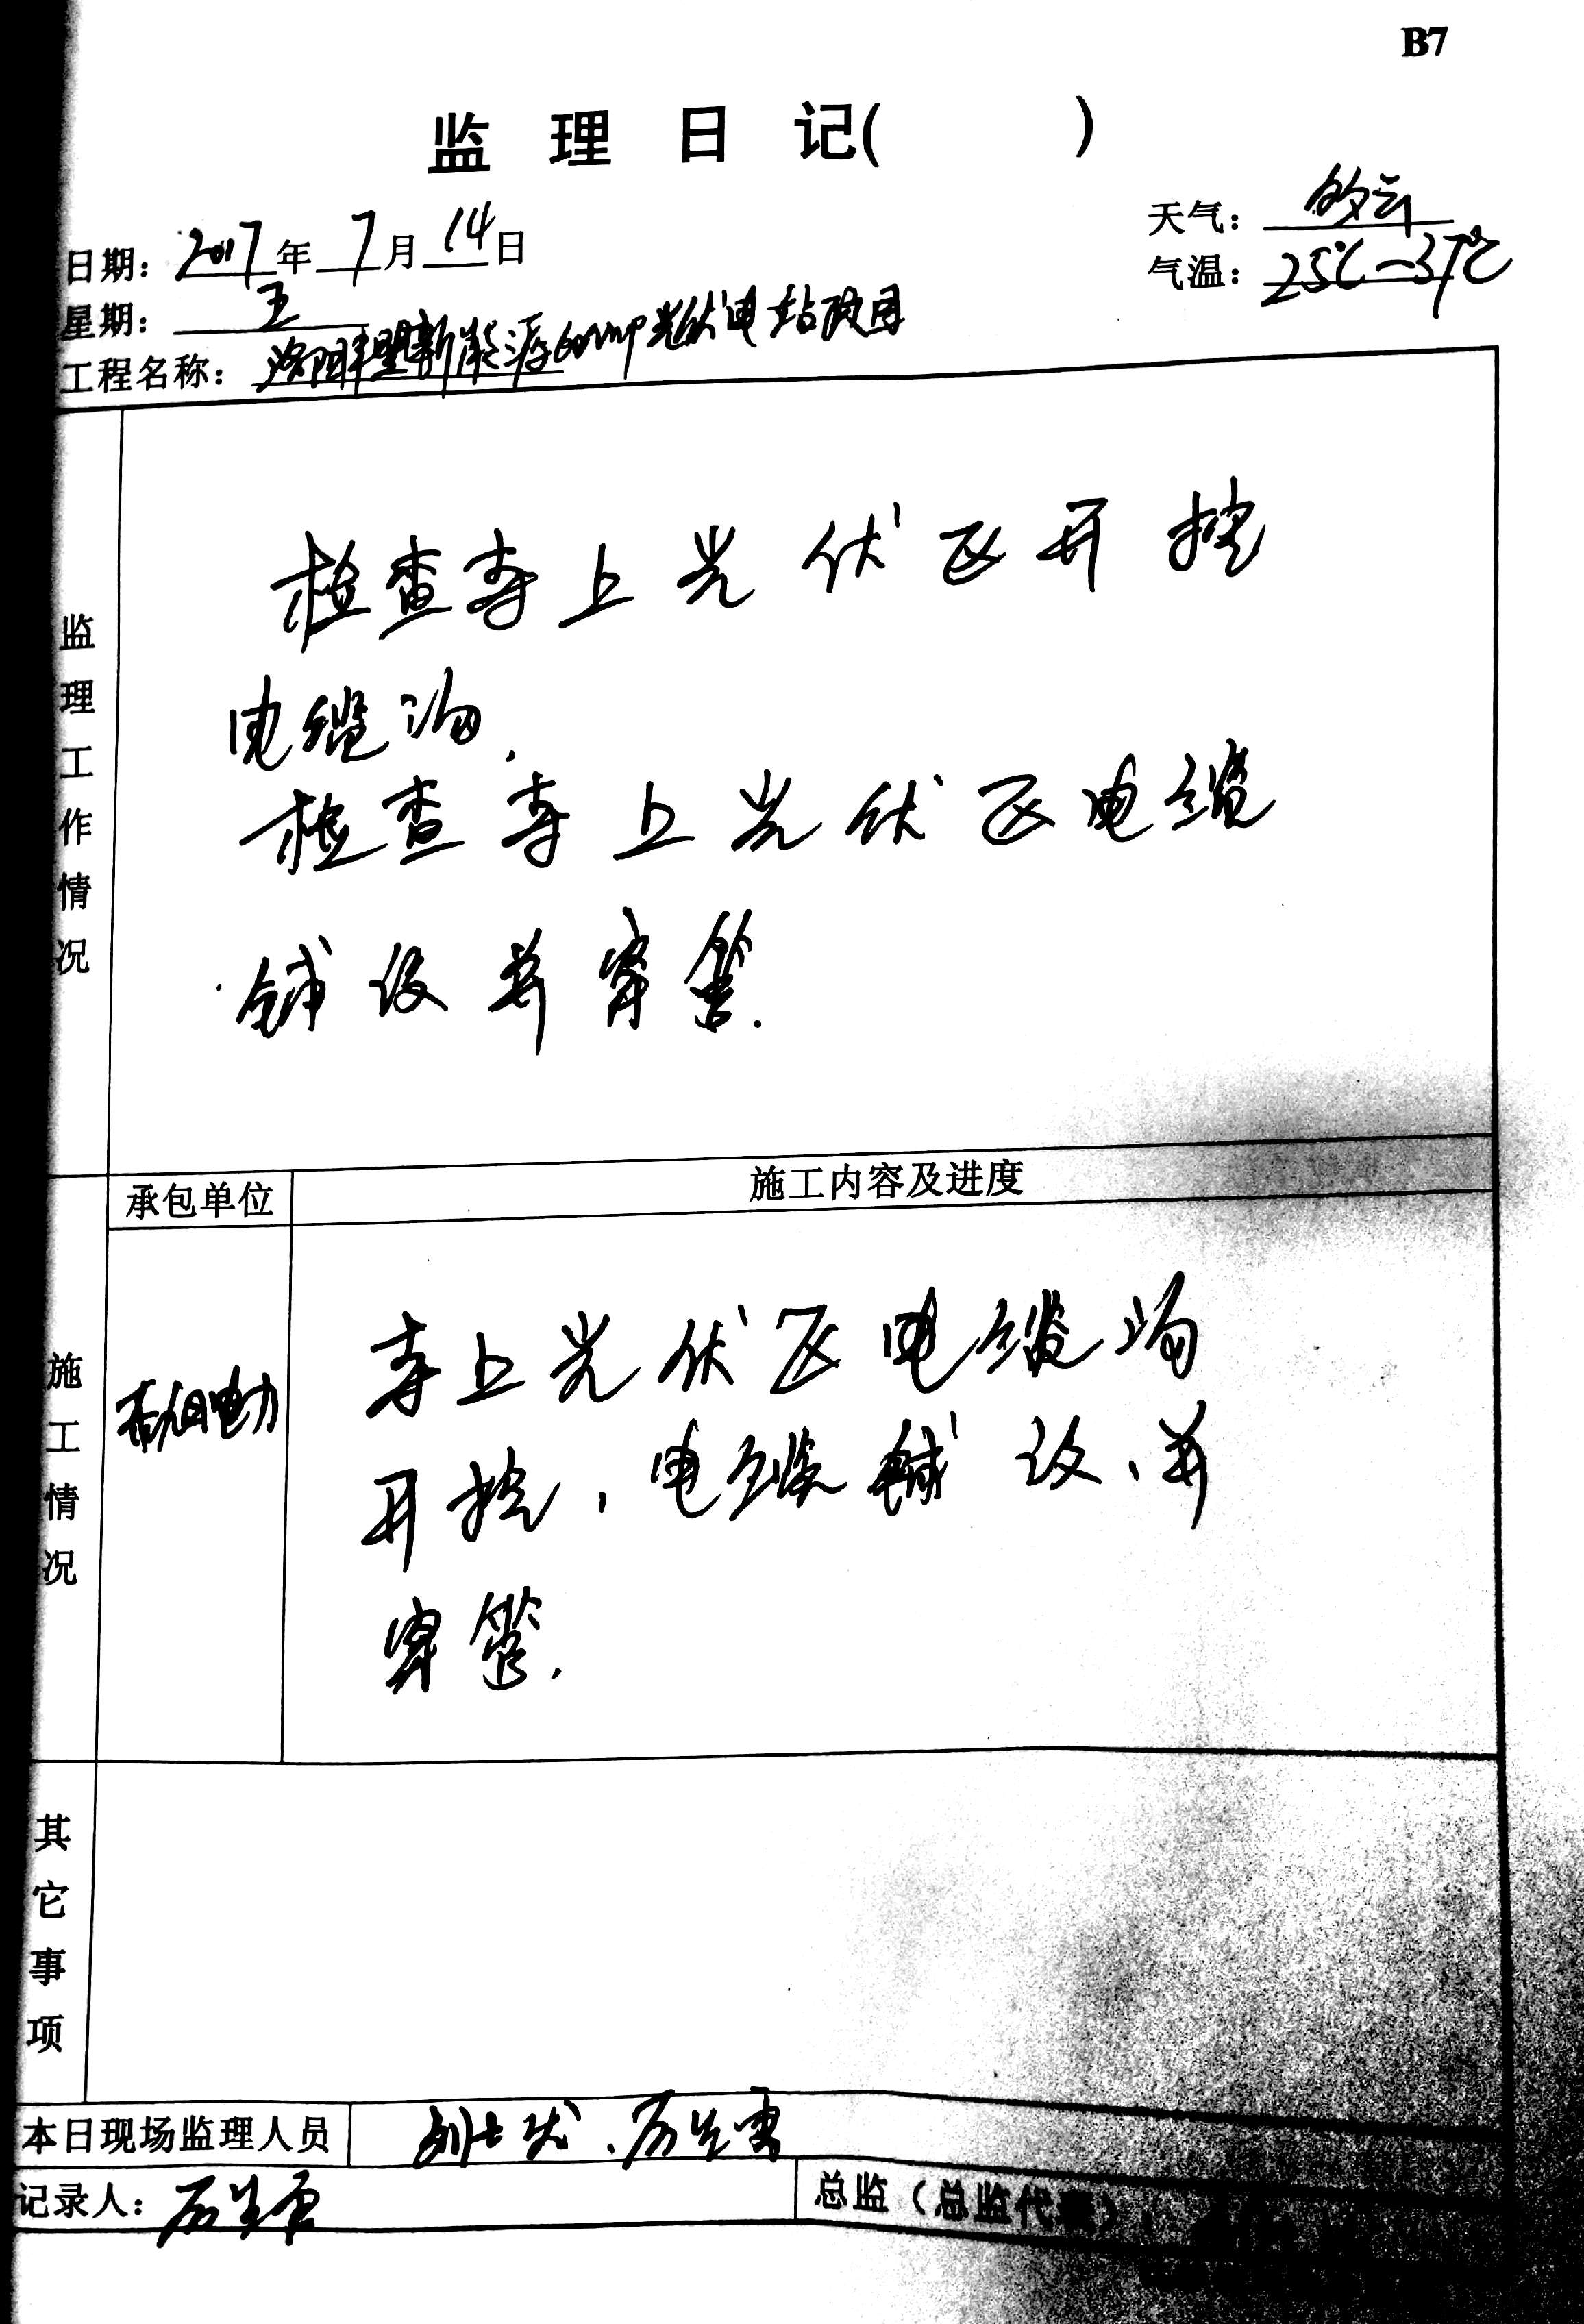 B7
监理日记( )
日期：2017年7月14日
天气：多云
星期：五
气温：25℃—37℃
工程名称：洛阳丰盟新能源60MWP光伏电站项目
监理工作情况
检查寺上光伏区开挖
电缆沟，
检查寺上光伏区电缆
铺设并穿管.
承包单位
施工内容及进度
施工情况
电力
寺上光伏区电缆沟
开挖，电缆铺设、并
穿管.
其它事项
本日现场监理人员
记录人：
总监（总监代表）